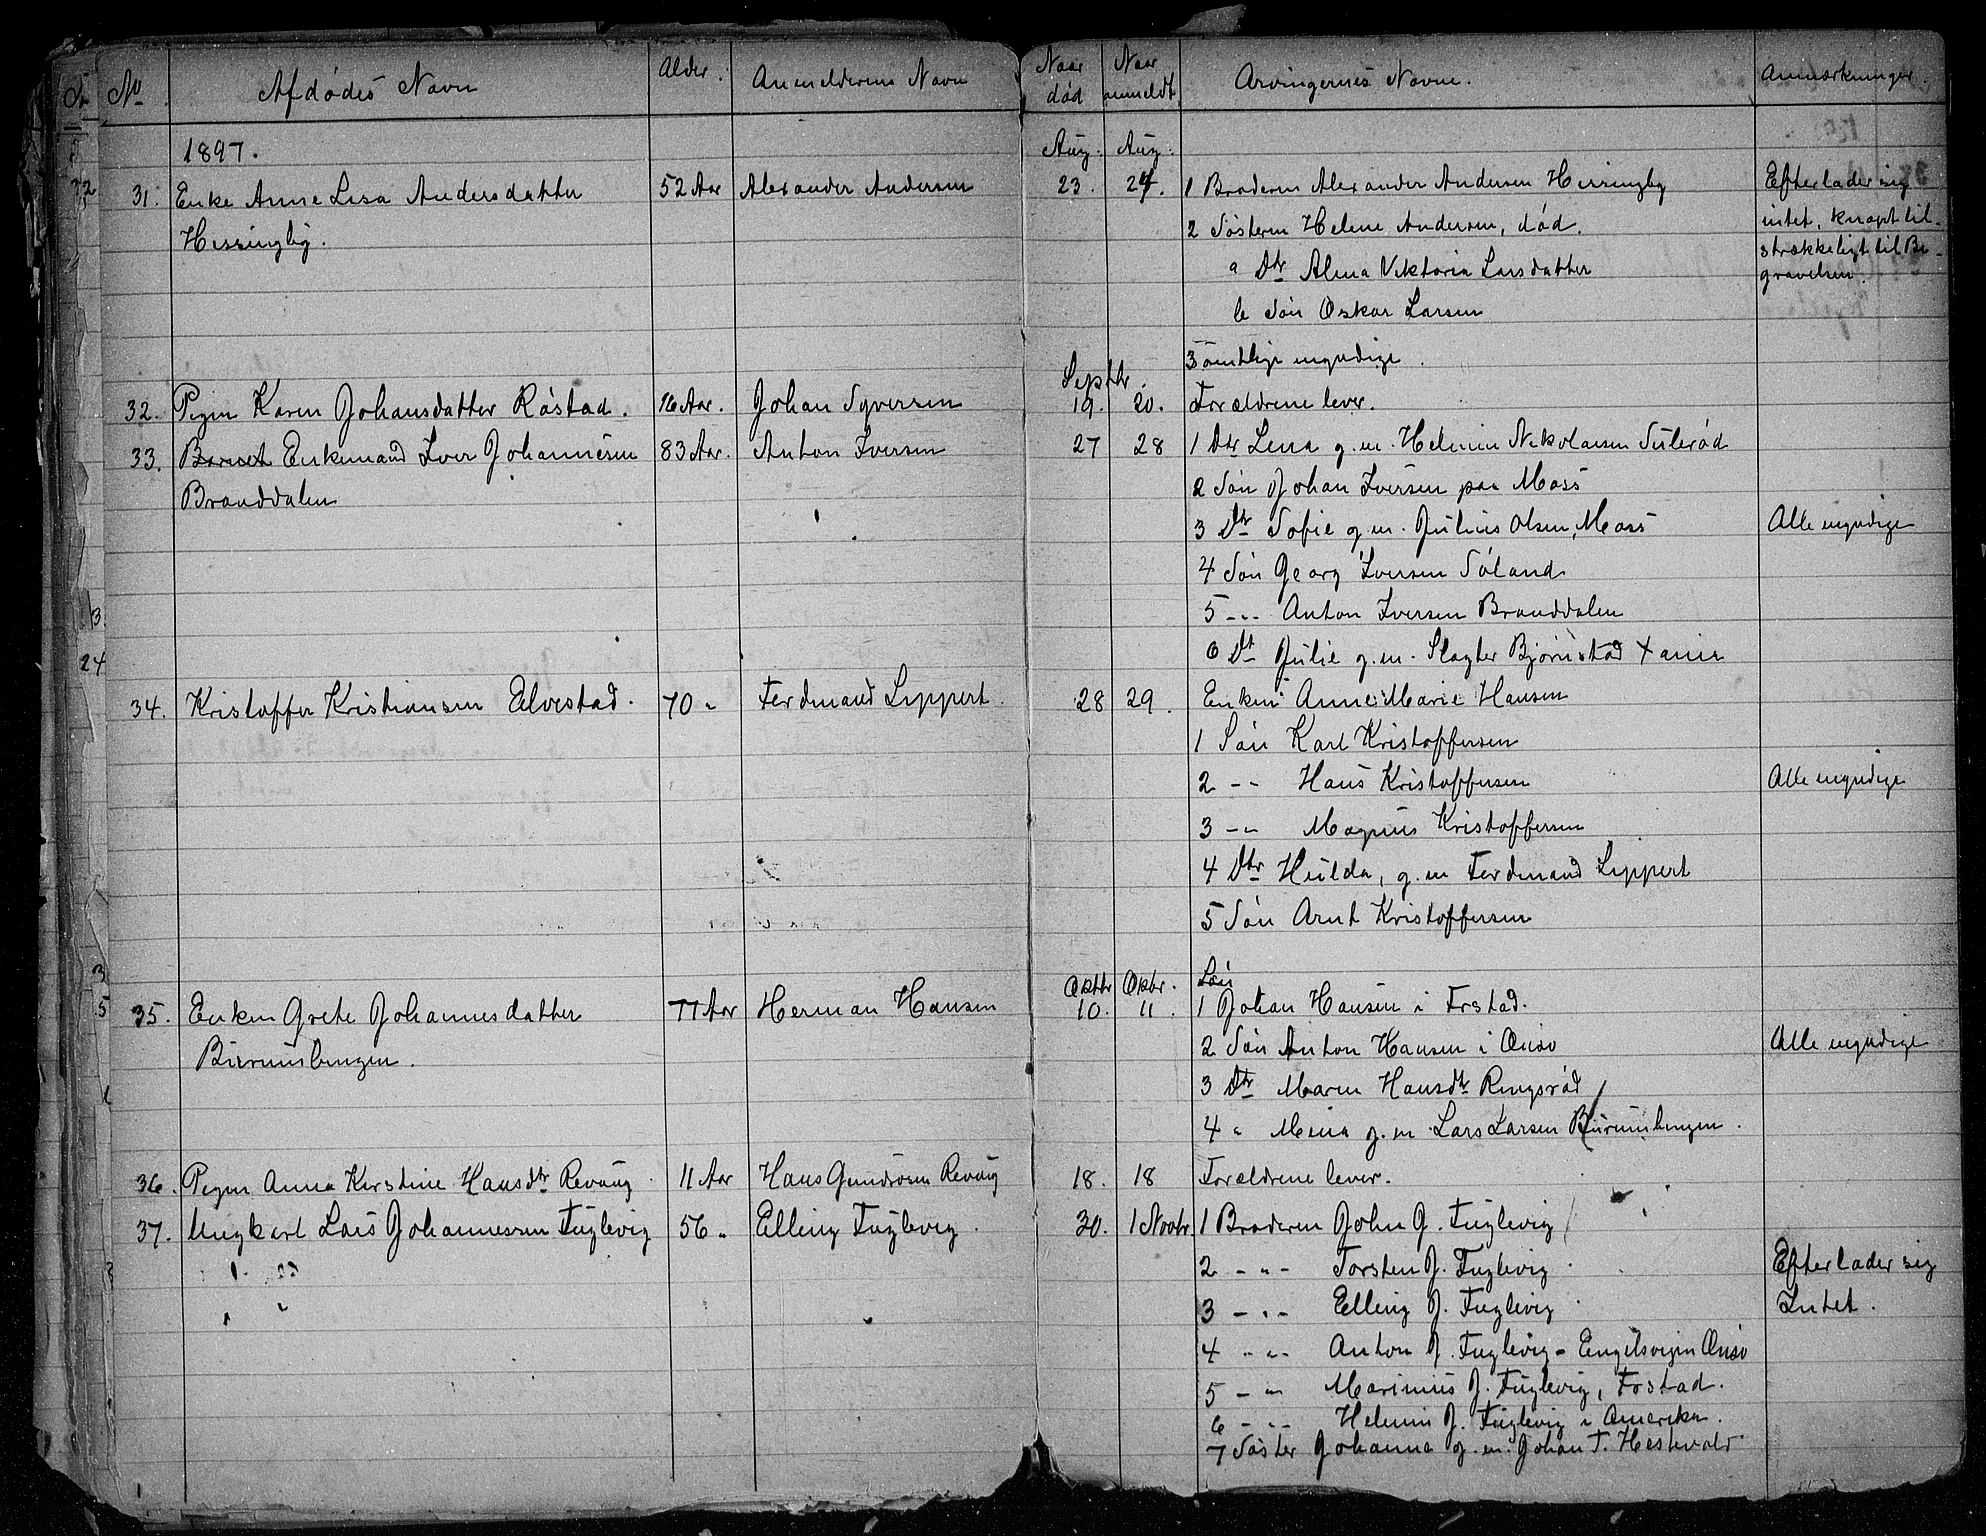 No Afdødes Navn Alder. Anmelderens Navn Naar død Naar anmeldt Arvingernes Navne. Anmærkninger.
1897. Aug. Aug.
31. Enke Anne Lisa Andersdatter 52 Aar Alexander Andersen 23. 24. 1 Broderen Alexander Andersen Herringby Efterlader sig
Herringby. 2 Søsteren Helene Andersen, død. intet, knapt til-
a Dtr Alma Viktoria Larsdatter strækkeligt til Be-
gravelsen.
b Søn Oskar Larsen
Septbr. Samtlige myndige.
32. Pigen Karen Johansdatter Røstad. 16 Aar. Johan Syversen 19. 20. Forældrene lever.
33. Barnet Enkemand Iver Johannesen 83 Aar. Anton Iversen 27 28 1 Dtr Lena g.m. Helmin Nikolaisen
Branddalen 2 Søn Johan Iversen paa Moss
3 Dtr Sofie g.m. Julius Olsen, Moss Alle myndige
4 Søn Georg Iversen Søland
5 -"- Anton Iversen Branddalen
6 Dt Julie g.m. Slagter Bjørnstad
34. Kristoffer Kristiansen Elvestad. 70 " Ferdinand Lippert. 28 29. Enken Anne Marie Hansen
1 Søn Karl Kristoffersen
2 -"- Hans Kristoffersen Alle myndige
3 -"- Magnus Kristoffersen
4 Dtr Hulda, g.m Ferdinand Lippert
5 Søn Arnt Kristoffersen
Oktbr Oktbr. Søn
35. Enken Grete Johannesdatter 77 Aar Herman Hansen 10. 11. 1 Johan Hansen i Frstad.
2 Søn Anton Hansen i Onsø Alle myndige
3 Dtr Maren Hansdtr Ringsrød
4 " Mina g.m. Lars Larsen
36. Pigen Anna Kirstine Hansdtr Revaug 11 Aar Hans Gundrosen Revaug 18. 18 Forældrene lever.
37. Ungkarl Lars Johannessen Fuglevig 56 " Elling Fuglevig. 30. 1 Novbr. 1 Broderen John J. Fuglevig
2 -"- Torsten J. Fuglevig Efterlader sig
3 -"- Elling J. Fuglevig Intet.
4 -"- Anton J. Fuglevig - Engelsvigen Onsø
5 -"- Marinius J. Fuglevig, Frstad.
6 -"- Helmin J. Fuglevig i Amerika.
7 Søster Johanna g.m. Johan T. Hestevold